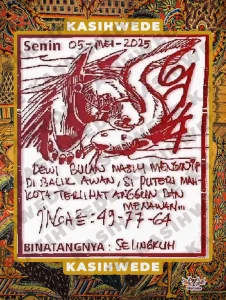 KASIHWEDE
Senin 05-MEI-2025
694
DEWI BULAN MASIH MENGINTIP
DI BALIK AWAN, SI PUTERI MAH-
KOTA TERLIHAT ANGGUN DAN
MENAWAN...
INGAT=:49-77-64
BINATANGNYA: SELINGKUH
KASIHWEDE